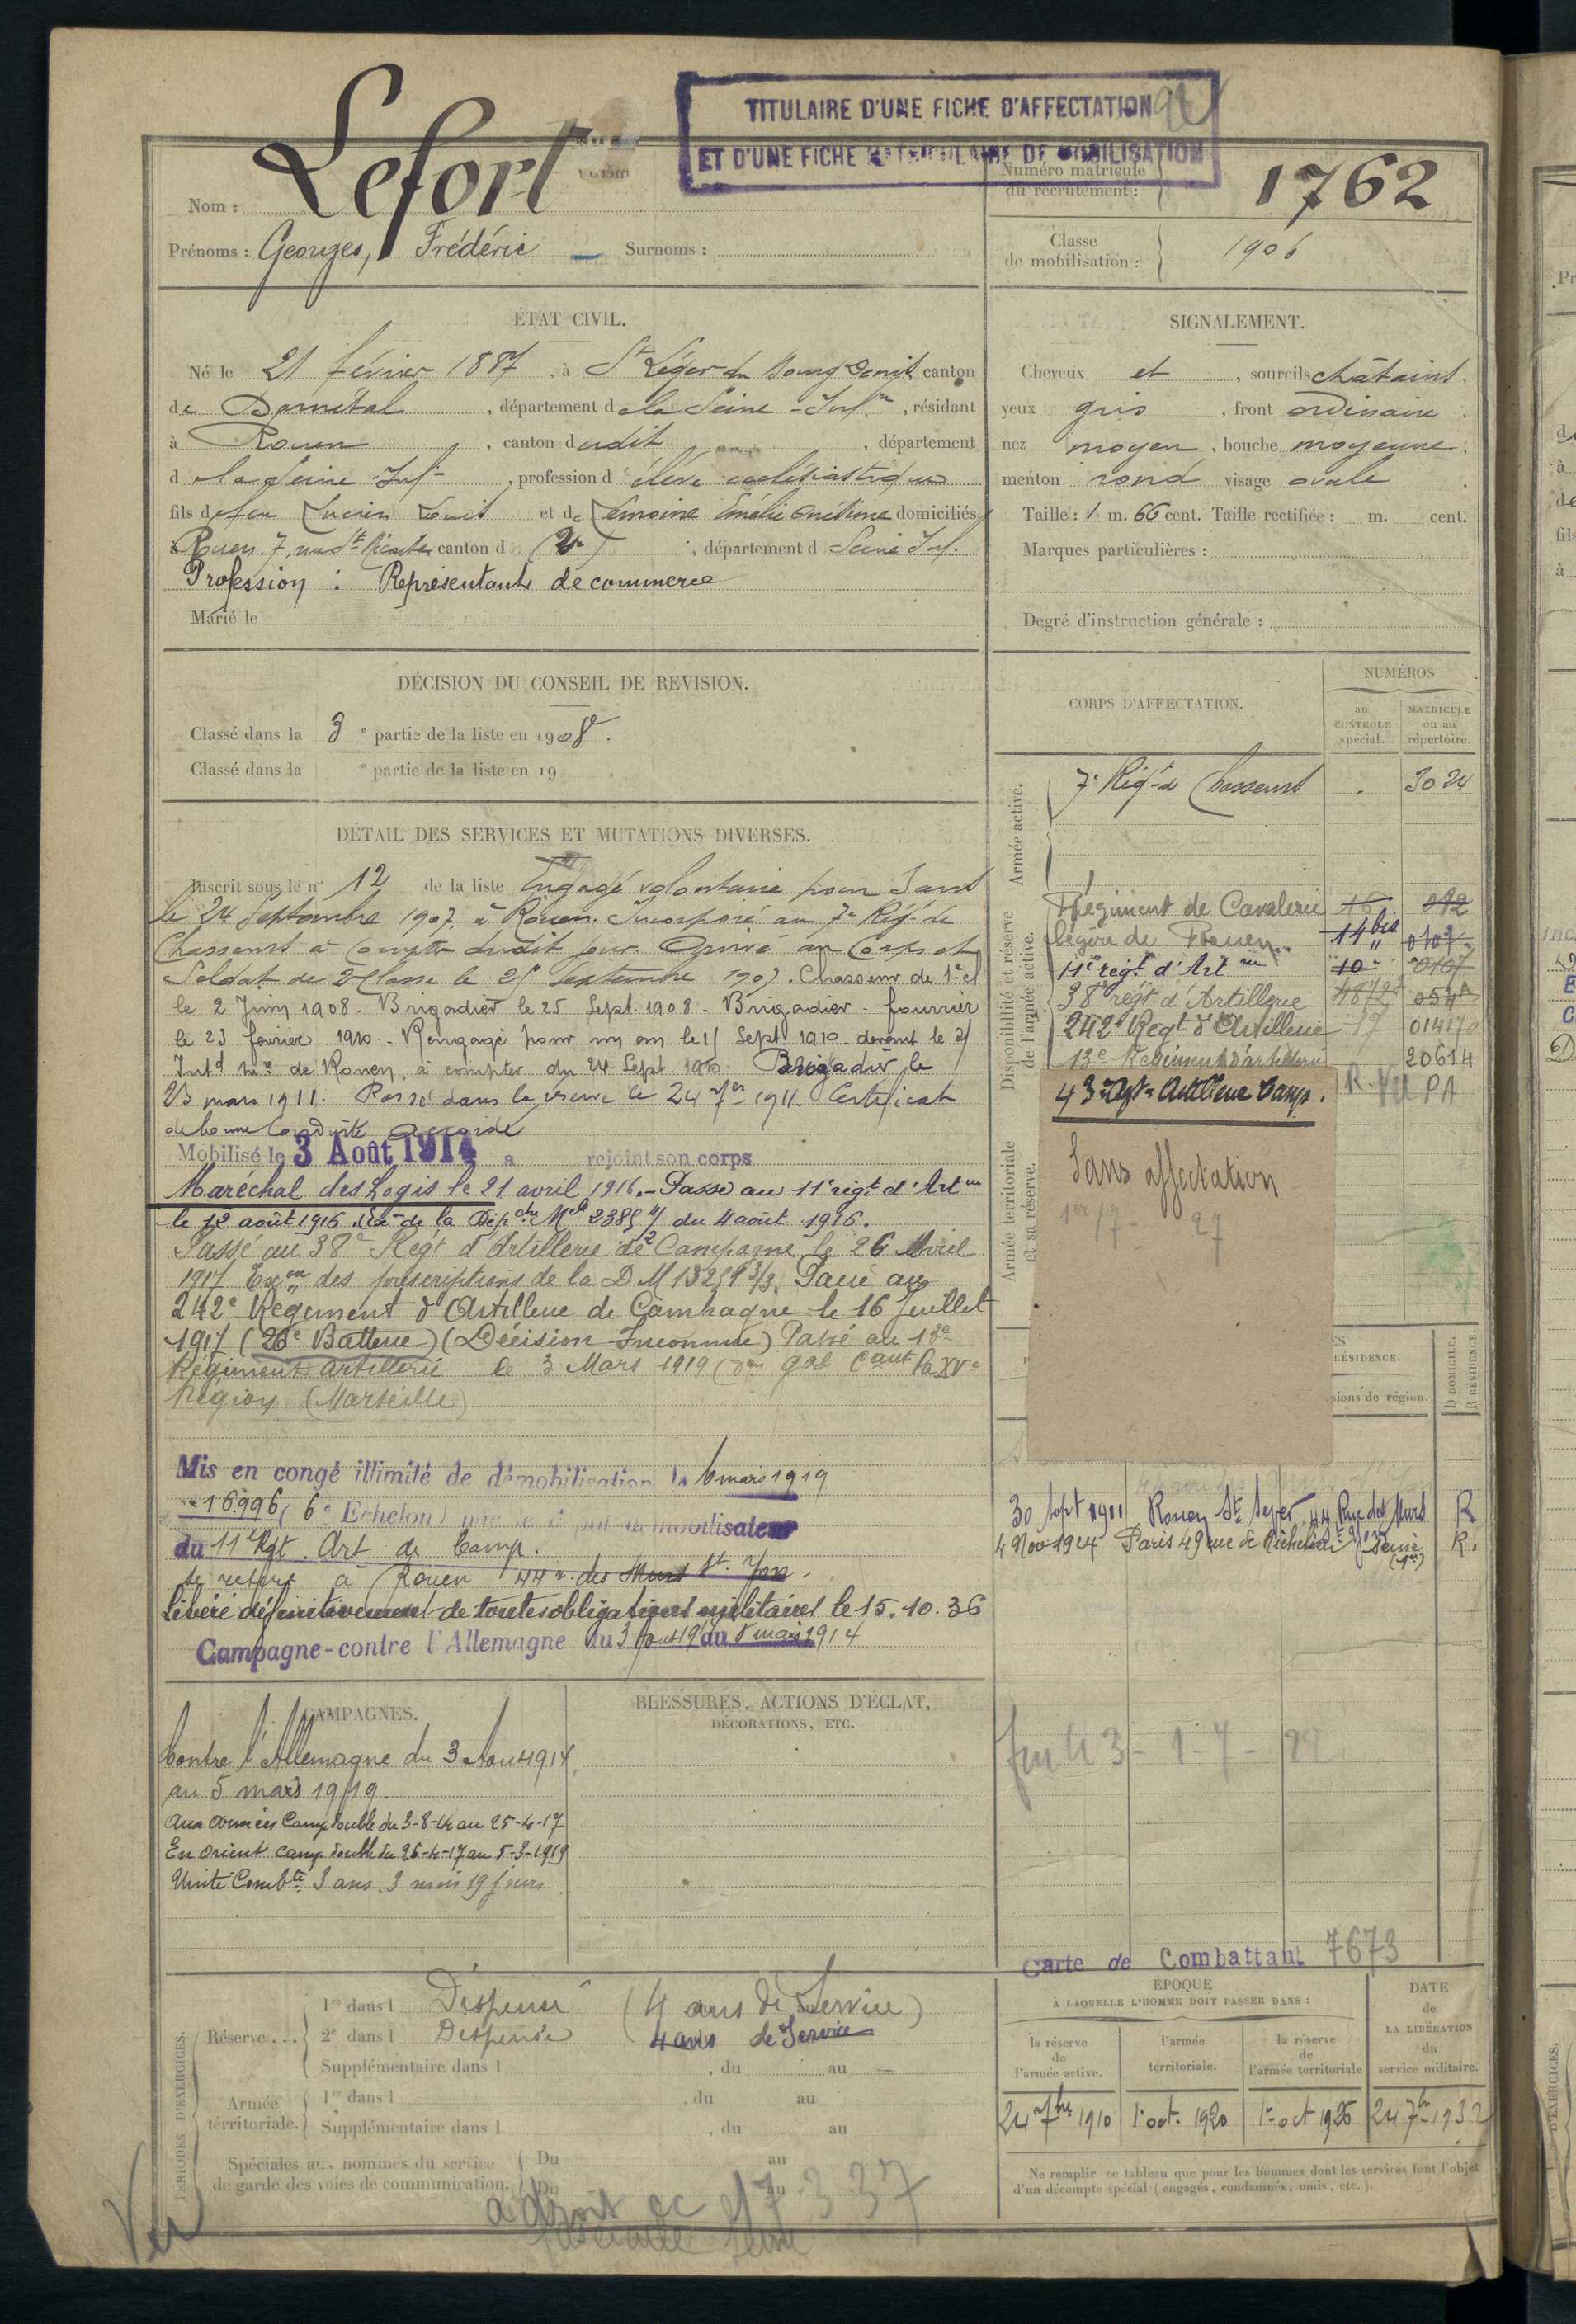 TITULAIRE D'UNE FICHE D'AFFECTATION
ET D'UNE FICHE MATRICULAIRE DE MOBILISATION
Nom : Lefort
Prénoms : Georges, Frédéric Surnoms :
Numéro matricule du recrutement : 1762
Classe de mobilisation : 1906
ÉTAT CIVIL.
Né le 21 février 1887, à St Léger du Bourg Denis, canton
de Darnétal, département de la Seine-Infre, résidant
à Rouen, canton dudit, département
d la Seine Infre, profession d'élève ecclésiastique
fils de feu Lucien Louis et de Lemoine Émélie Onésime domiciliés
à Rouen 7, rue St canton d (2e), département d Seine Inf.
Profession : Représentant de commerce
Marié le
SIGNALEMENT.
Cheveux et, sourcils châtains.
yeux gris, front ordinaire.
nez moyen, bouche moyenne.
menton rond visage ovale.
Taille : 1 m. 66 cent. Taille rectifiée : m. cent.
Marques particulières :
Degré d'instruction générale :
DÉCISION DU CONSEIL DE REVISION.
Classé dans la 3e partie de la liste en 1908.
Classé dans la e partie de la liste en 19
DÉTAIL DES SERVICES ET MUTATIONS DIVERSES.
Inscrit sous le n° 12 de la liste Engagé volontaire pour 3 ans
le 24 Septembre 1907, à Rouen. Incorporé au 7e Régt de
Chasseurs à compter dudit jour. Arrivé au Corps et
Soldat de 2e Classe le 25 Septembre 1907. Chasseur de 1re cl
le 2 Juin 1908. Brigadier le 25 Sept. 1908. Brigadier-fourrier
le 23 février 1910. Rengagé pour un an le 15 Sept. 1910 devant le S/
Intd mre de Rouen, à compter du 24 Sept. 1910. Brigadier le
23 mars 1911. Passé dans la réserve le 24 7bre 1911. Certificat
de bonne Conduite accordé
Mobilisé le 3 Août 1914 a rejoint son corps
Maréchal des Logis le 21 avril 1916. - Passé au 11e régt d'Artie
le 12 août 1916 Exon de la Dépche Melle 2385 4/ du 4 août 1916.
Passé au 38e Regt d'Artillerie de Campagne le 26 Avril
1917 Exon des prescriptions de la D.M 13251 3/3. Passé au
242e Régiment d'Artillerie de Campagne le 16 Juillet
1917 (26e Batterie) (Décision Inconnue) Passé au 13e
Régiment artillerie le 3 Mars 1919 (Don Gal Caut la XVe
Région (Marseille)
Mis en congé illimité de démobilisation le 6 mars 1919
n° 16.996 (6e Echelon) par le dépôt démobilisateur
du 11e Rgt. Art de Camp.
se retire à Rouen 44 r. des Murs St. Yon.
Libéré définitivement de toutes obligations militaires le 15.10.36
Campagne contre l'Allemagne du 3 Août 19 au 5 mars 1914
CORPS D'AFFECTATION.
NUMÉROS
au CONTRÔLE spécial.
MATRICULE ou au répertoire.
Armée active.
7e Régt de Chasseurs 3024
Disponibilité et réserve de l'armée active.
Régiment de Cavalerie 16 012
légère de Rouen 14 bis 0107
11e régt d'Artie 10 0107
38e régt d'Artillerie 4872 054A
242e Regt d'Artillerie 19 014170
13e Régiment d'artillerie 20614
43e Regt Artillerie Camp. R. VU PA
Armée territoriale et sa réserve.
Sans affectation
1er/7 - 27
RÉSIDENCE.
sions de région.
D DOMICILE.
R RÉSIDENCE.
30 Sept 1911 Rouen St Sever, 44 Rue des Murs R
4 Nov 1924 Paris 49 rue de Richelieu Seine (1er) R.
CAMPAGNES.
Contre l'Allemagne du 3 Août 1914
au 5 mars 1919.
Aux armées Camp double du 3-8-14 au 25-4-17
En Orient camp double du 26-4-17 au 5-3-1919
Unité Combte 3 ans 3 mois 19 jours
BLESSURES, ACTIONS D'ÉCLAT,
DÉCORATIONS, ETC.
43 - 1 - 7 - 22
Carte de Combattant 7673
PÉRIODES D'EXERCICES.
Réserve....
1re dans l Dispensé (4 ans de Service)
2e dans l Dispensé 4 ans de Service
Supplémentaire dans l, du au
Armée territoriale.
1re dans l, du au
Supplémentaire dans l, du au
Spéciales aux hommes du service de garde des voies de communication.
Du au
Du au
a droit CC 337
Vu
ÉPOQUE
À LAQUELLE L'HOMME DOIT PASSER DANS :
la réserve de l'armée active.
l'armée territoriale.
la réserve de l'armée territoriale
DATE de LA LIBÉRATION du service militaire.
24 7bre 1910 1er oct. 1920 1er oct 1926 24 7bre 1932
Ne remplir ce tableau que pour les hommes dont les services font l'objet
d'un décompte spécial (engagés, condamnés, omis, etc.).